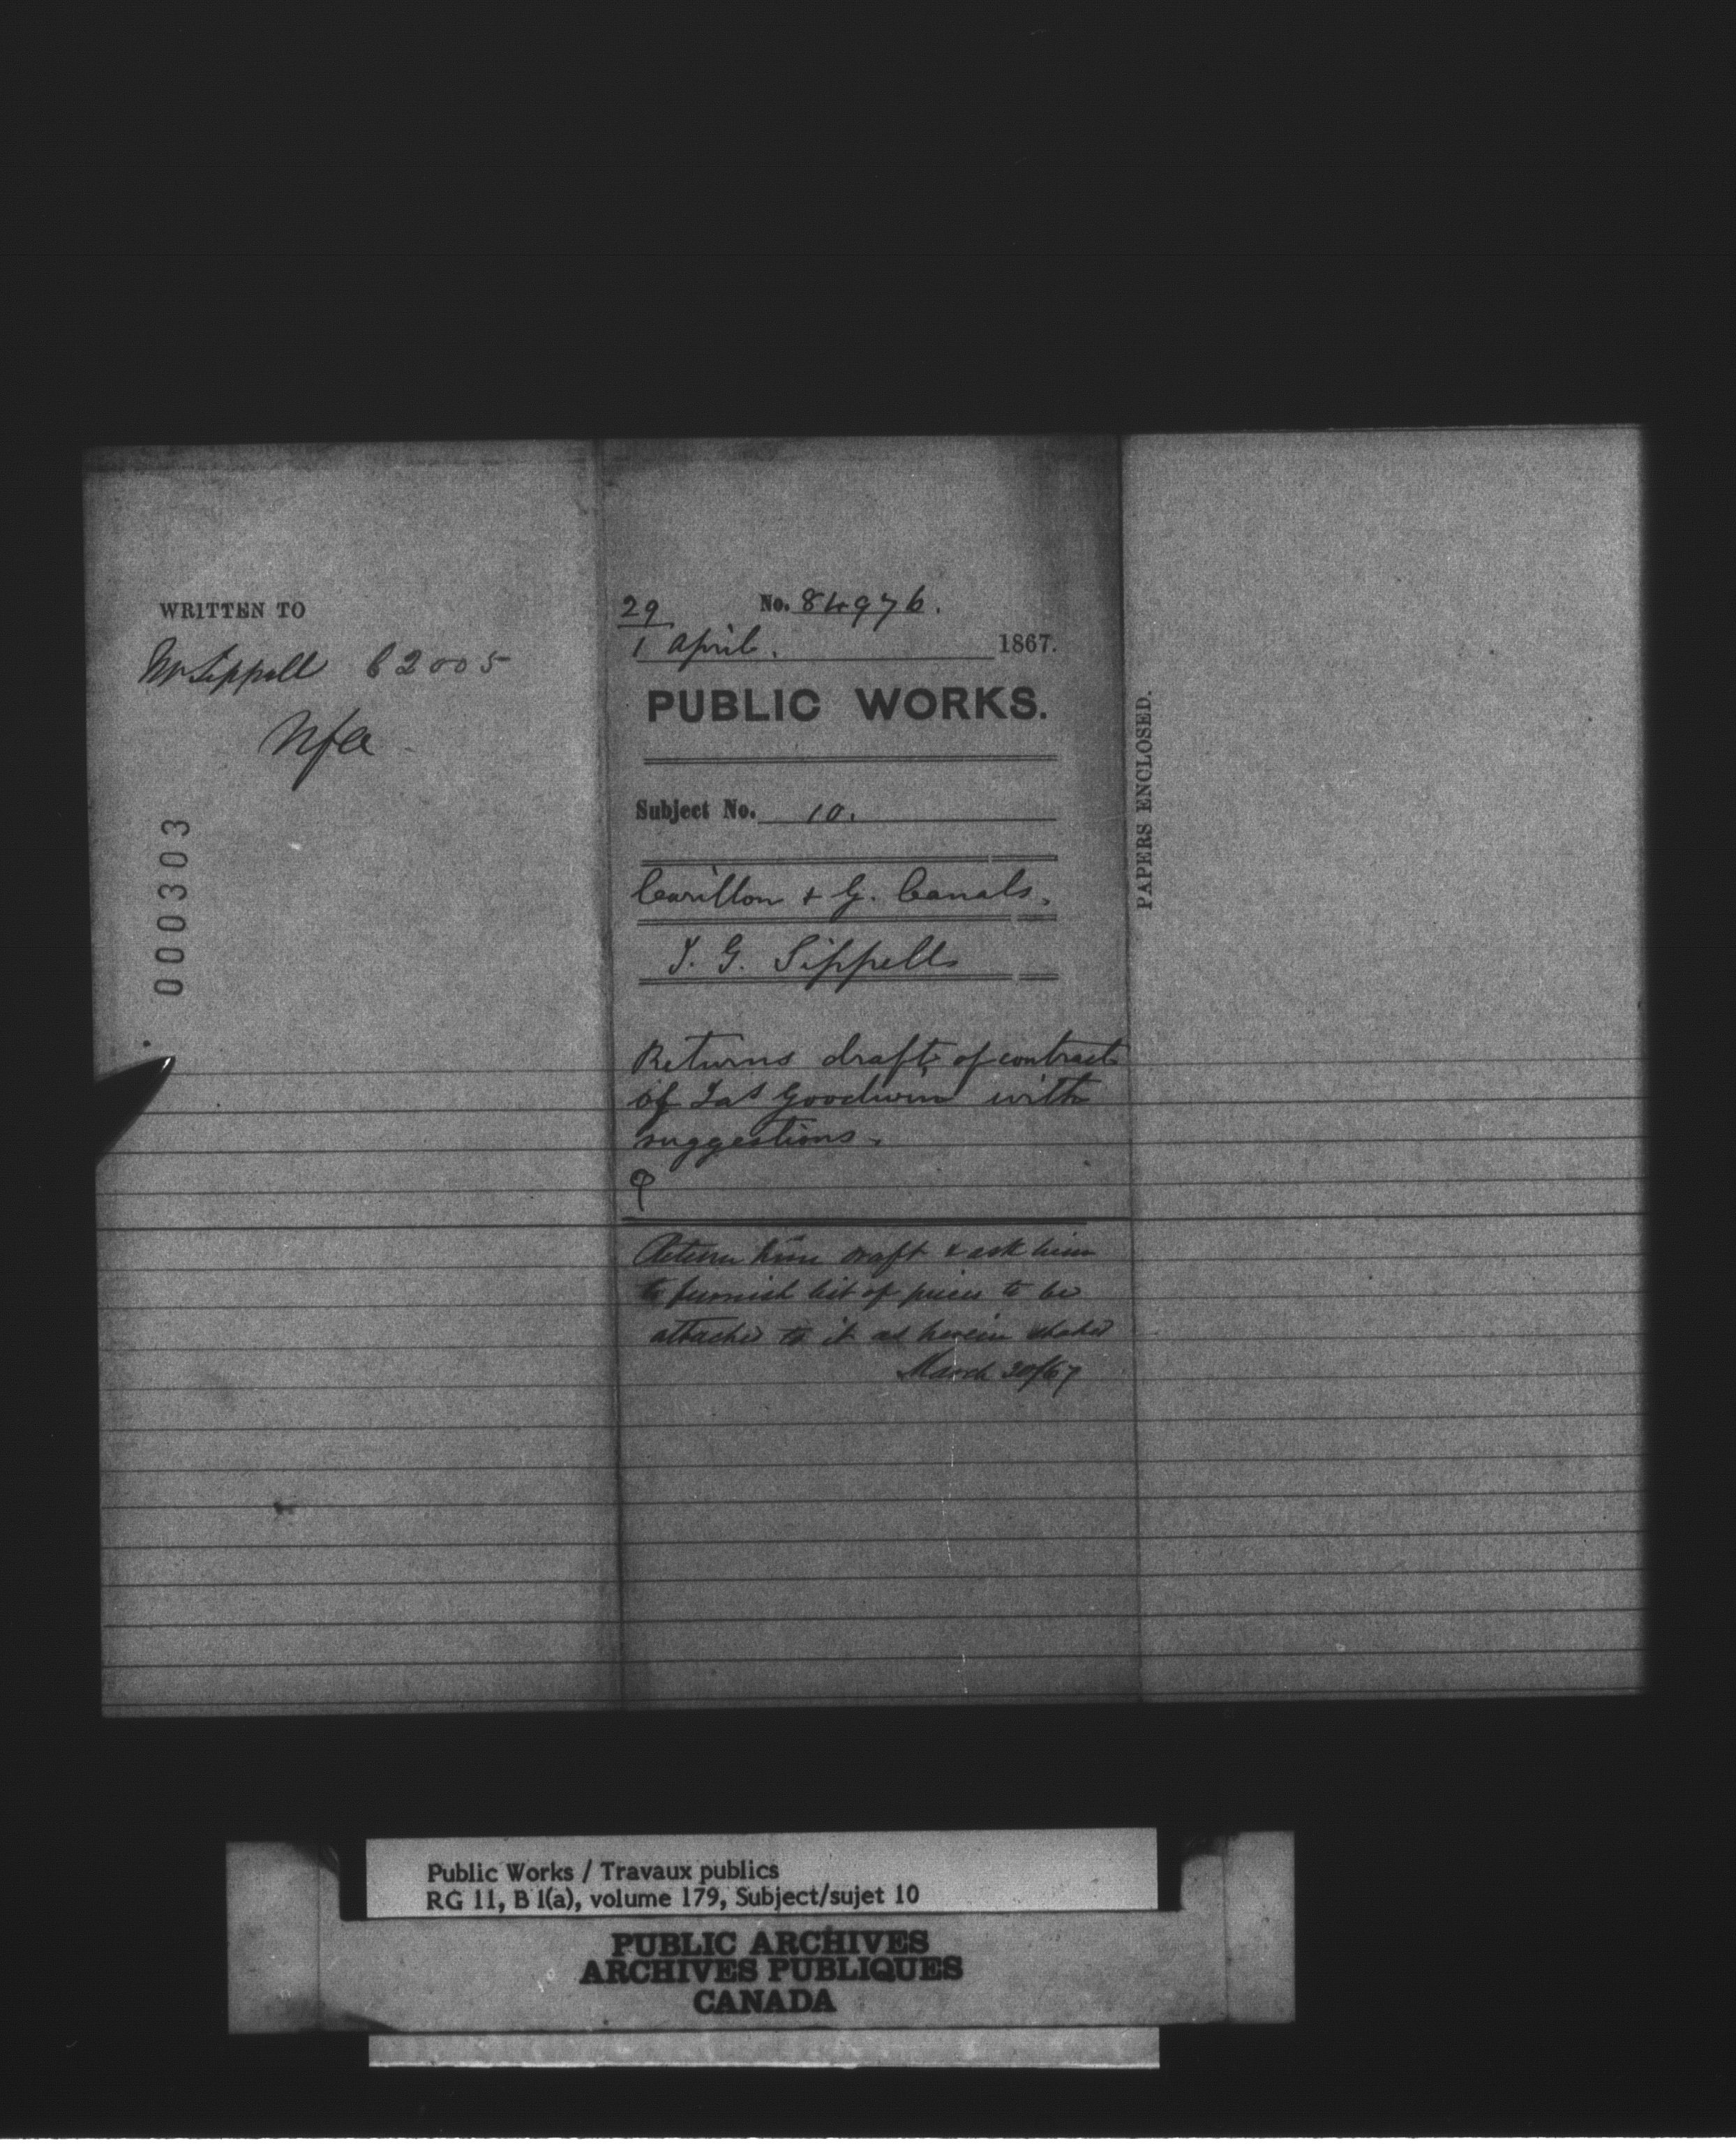 WRITTEN TO
Mr Sippell 62005
Nfa
000303
29 No. 84976.
1 April. 1867.
PUBLIC WORKS.
Subject No. 10.
Carillon & G. Canals.
J. G. Sippell
Returns draft of contract
of Jas Goodwin with
suggestions.
Return him draft & ask him
to furnish list of prices to be
attached to it as herein stated
March 30/67
PAPERS ENCLOSED.
Public Works / Travaux publics
RG 11, B 1(a), volume 179, Subject/sujet 10
PUBLIC ARCHIVES
ARCHIVES PUBLIQUES
CANADA